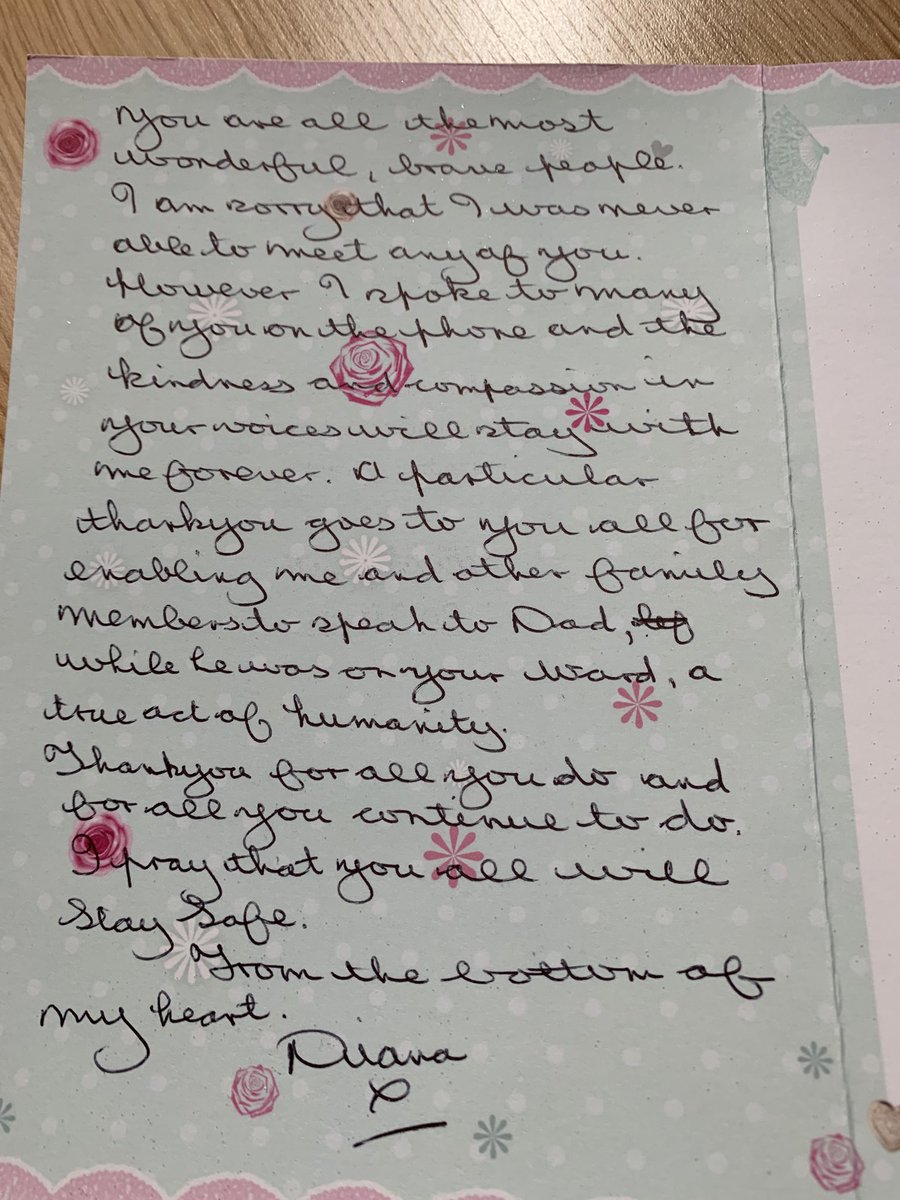 You are all the most
wonderful, brave people.
I am sorry that I was never
able to meet any of you.
However I spoke to many
of you on the phone and the
kindness and compassion in
your voices will stay with
me forever. A particular
thankyou goes to you all for
enabling me and other family
members to speak to Dad,
while he was on your Ward, a
true act of humanity.
Thankyou for all you do and
for all you continue to do.
I pray that you all will
Stay Safe.
From the bottom of
my heart.
Diana
x